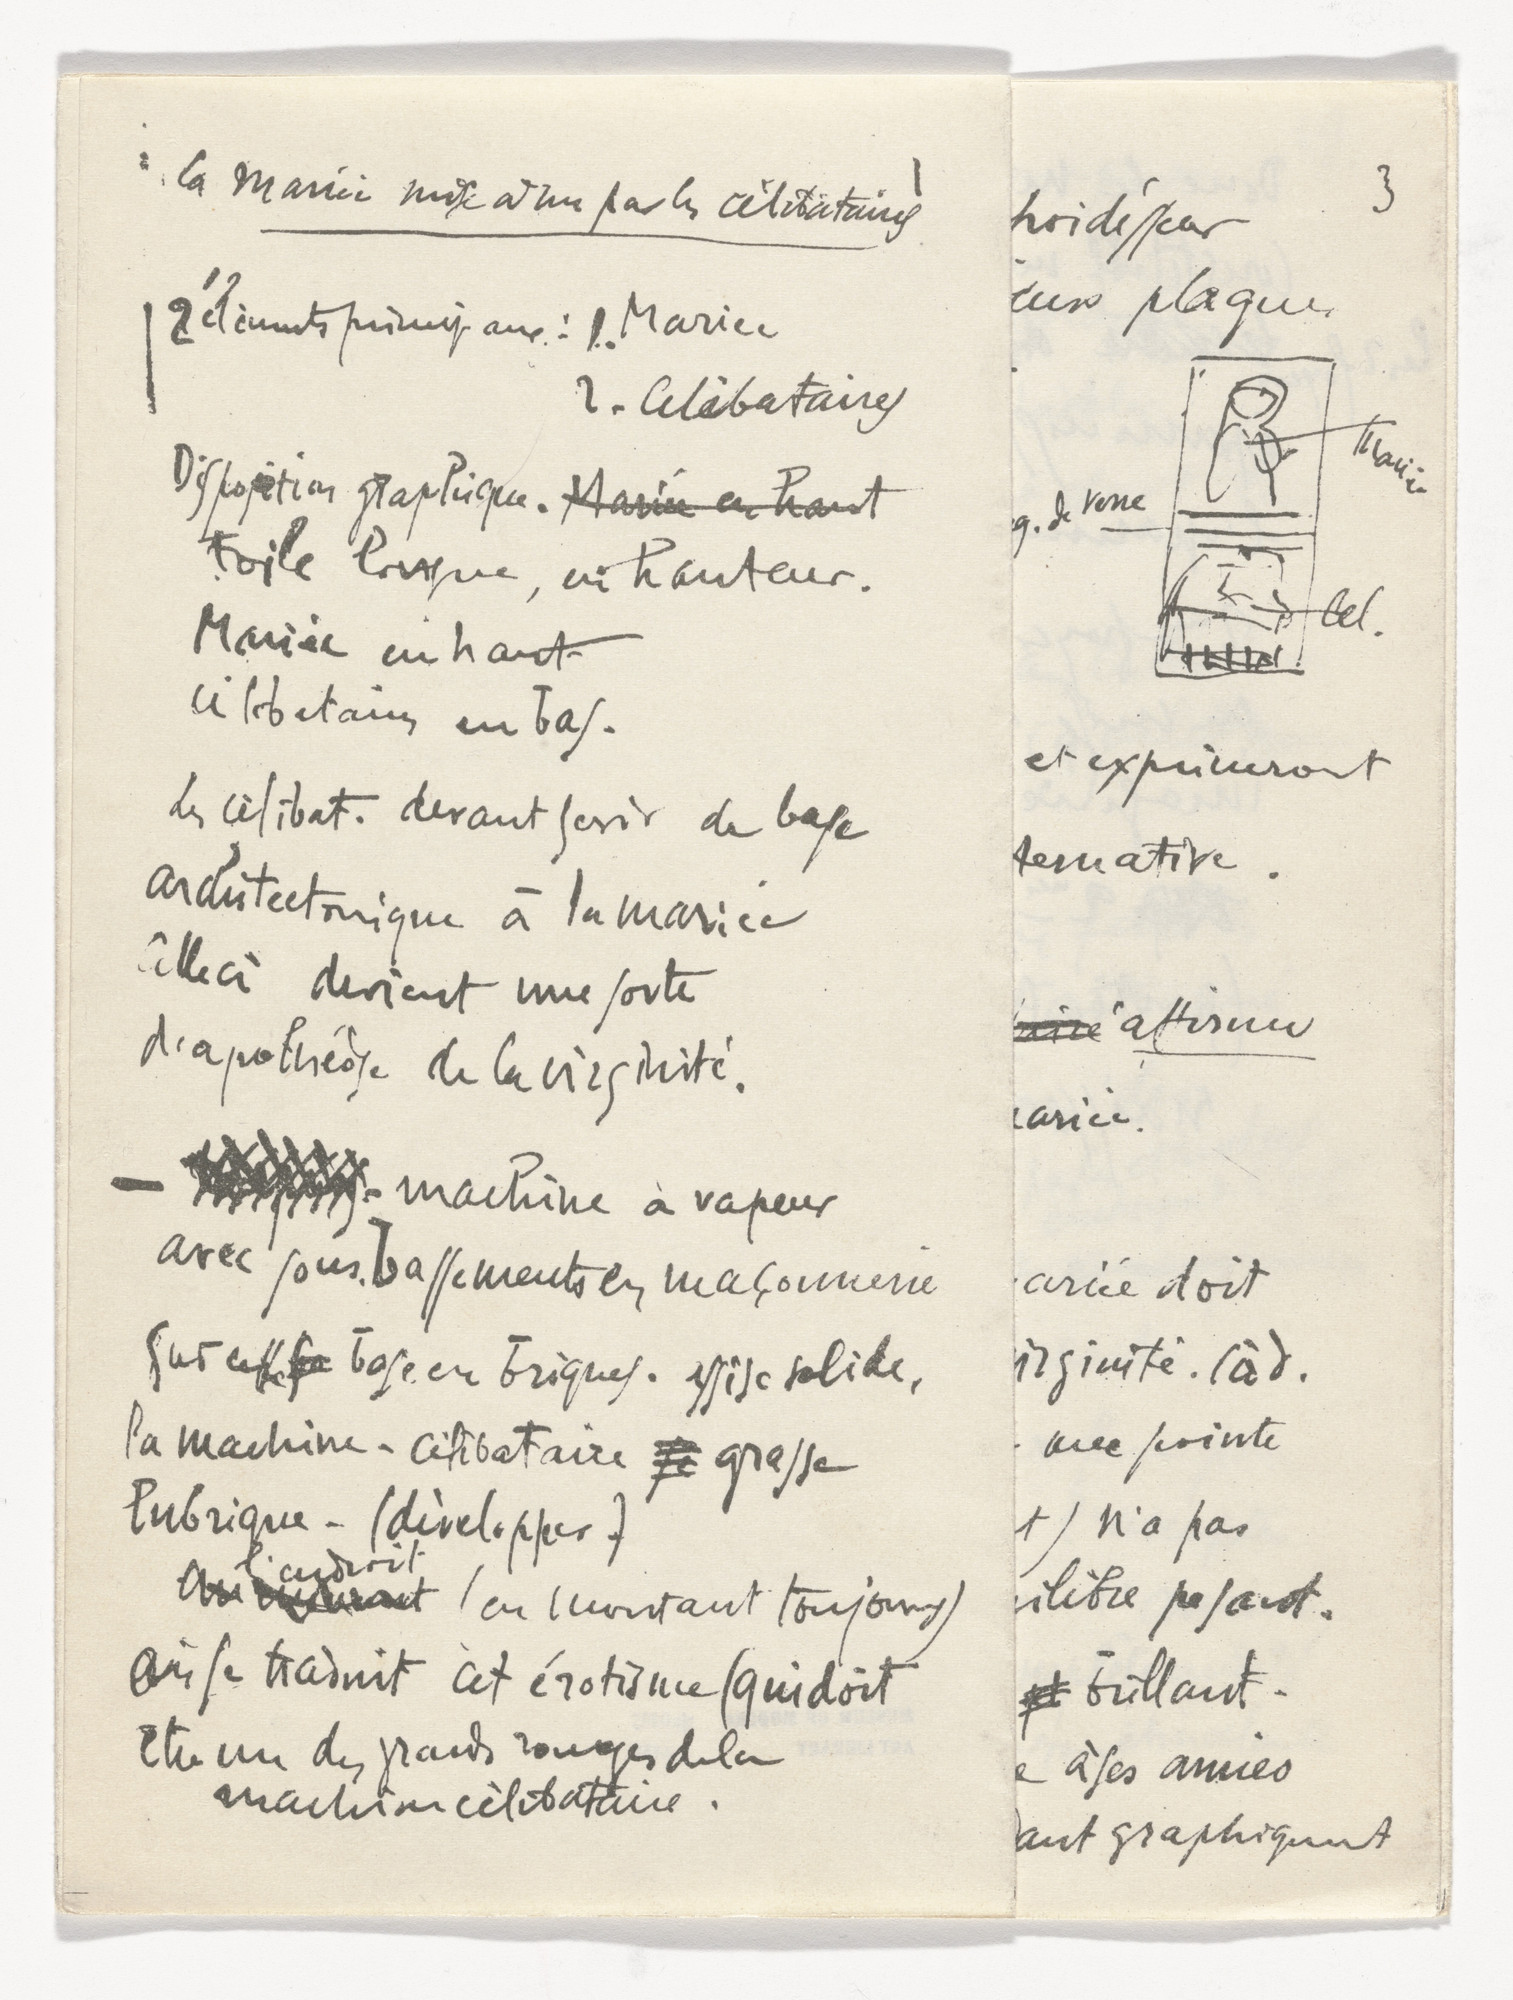 1
la Mariée mise à nu par les célibataires
2 éléments principaux : 1. Mariée
2. Célibataires
Disposition graphique. Mariée en haut
toile longue, en hauteur.
Mariée en haut
célibataires en bas.
Les célibat. devant servir de base
architectonique à la mariée
celle ci devient une sorte
d'apothéose de la virginité.
— machine à vapeur
avec sous.bassements en maçonnerie
Sur cette base en briques. assise solide,
la machine - célibataire grasse
lubrique - (développer.)
l'endroit
Au (en montant toujours)
où se traduit cet érotisme (qui doit
être un des grands rouages de la
machine célibataire.
3
hoidésseur
deux plaques
Mariée
g. de verre
Cel.
et exprimeront
ternative.
affirmer
ariée.
ariée doit
irginité. Càd.
- une pointe
t) n'a pas
ilibre pesant.
brillant -
e à ses amies
ant graphiqumt